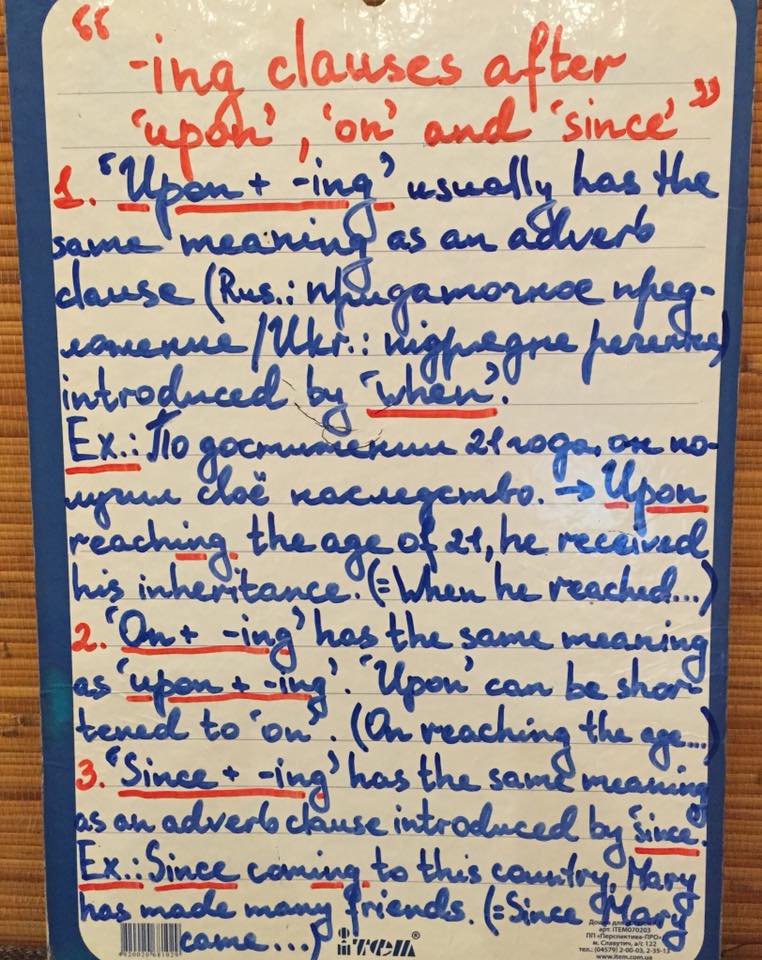 "-ing clauses after
'upon', 'on' and 'since'"
1. 'Upon + -ing' usually has the
same meaning as an adverb
clause (Rus.: придаточное пред-
ложение / Ukr.: підрядне речення)
introduced by 'when'.
Ex.: По достижении 21 года, он по-
лучил своё наследство. → Upon
reaching the age of 21, he received
his inheritance. (=When he reached...)
2. 'On + -ing' has the same meaning
as 'upon + -ing'. 'Upon' can be shor-
tened to 'on'. (On reaching the age...)
3. 'Since + -ing' has the same meaning
as an adverb clause introduced by 'since'.
Ex.: Since coming to this country, Mary
has made many friends. (=Since Mary
came...)
item®
арт. ITEM070203
ПП «Перспектива-ПРО»
м. Славутич, а/с 122
тел.: (04579) 2-00-03, 2-35-13
www.item.com.ua